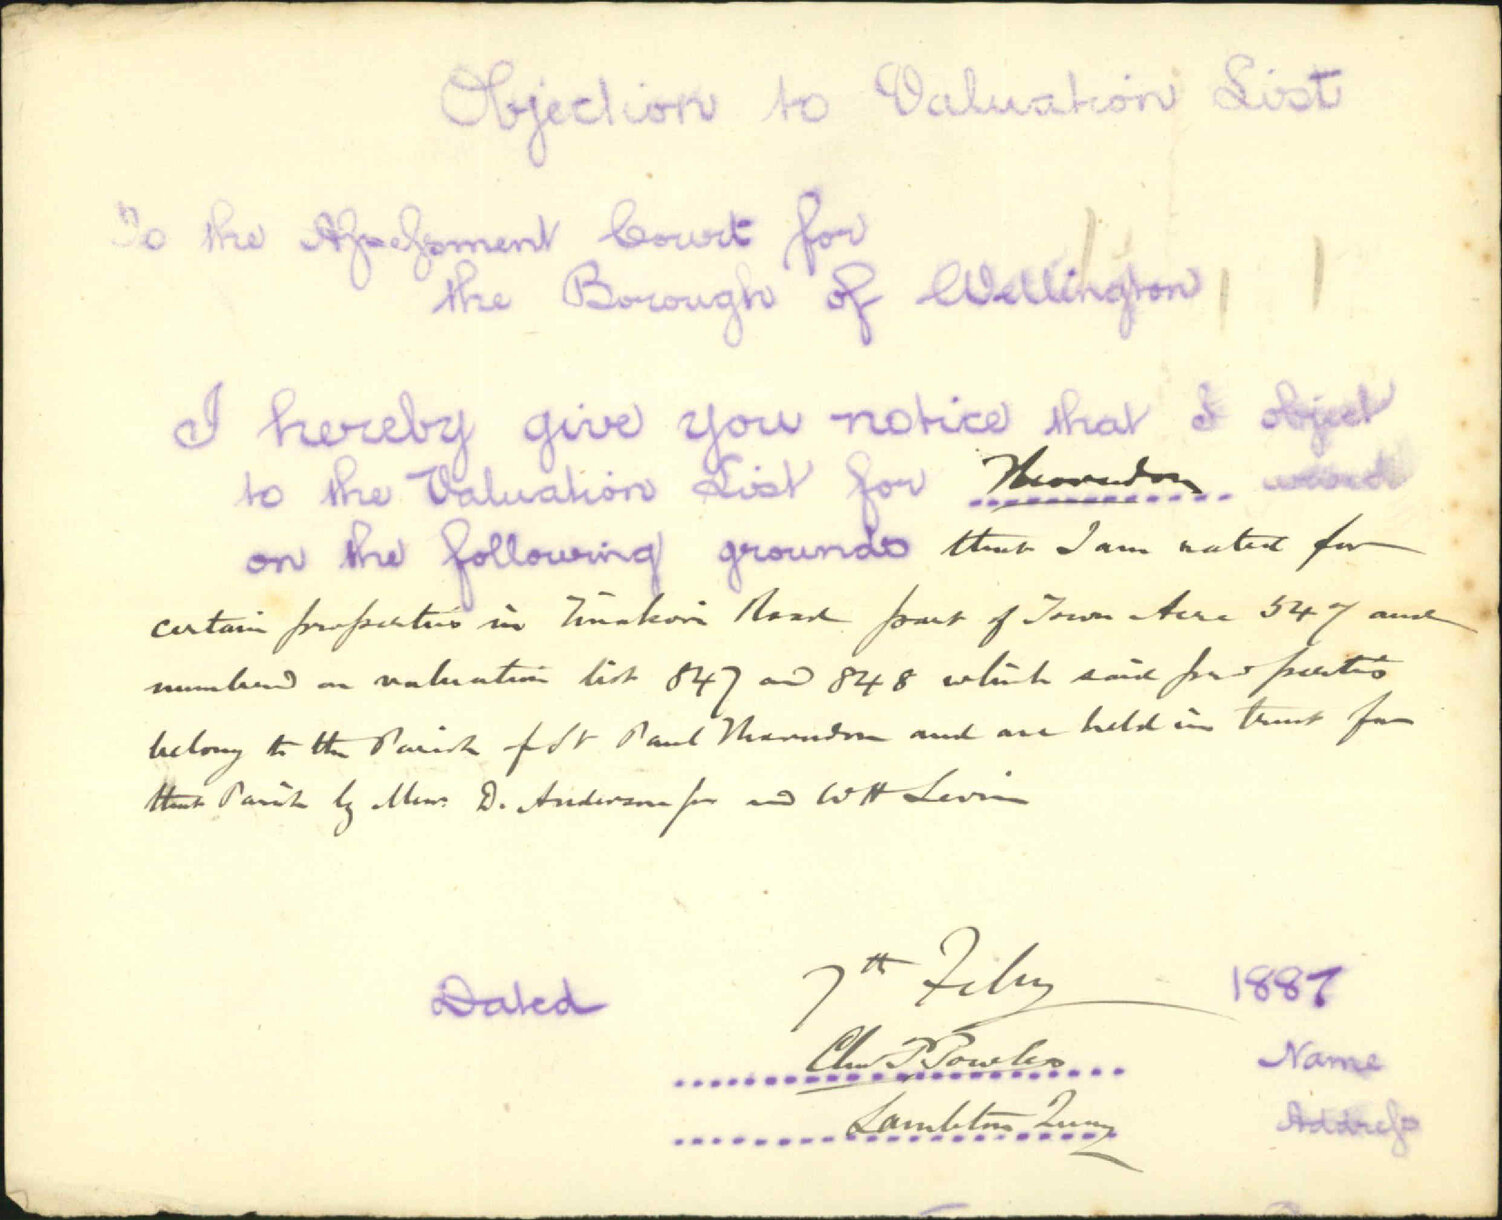 Objection to Valuation List
To the Assessment Court for
the Borough of Wellington
I hereby give you notice that I object
to the Valuation List for Thorndon ward
on the following grounds that I am rated for
certain properties in Tinakori Road part of Town Acre 547 and
numbered on valuation list 847 and 848 which said properties
belong to the Parish of St Paul Thorndon and are held in trust for
that Parish by Messrs D. Anderson jnr and W H Levin
Dated 7th Feby 1887
Chas P Powles Name
Lambton Quay Address